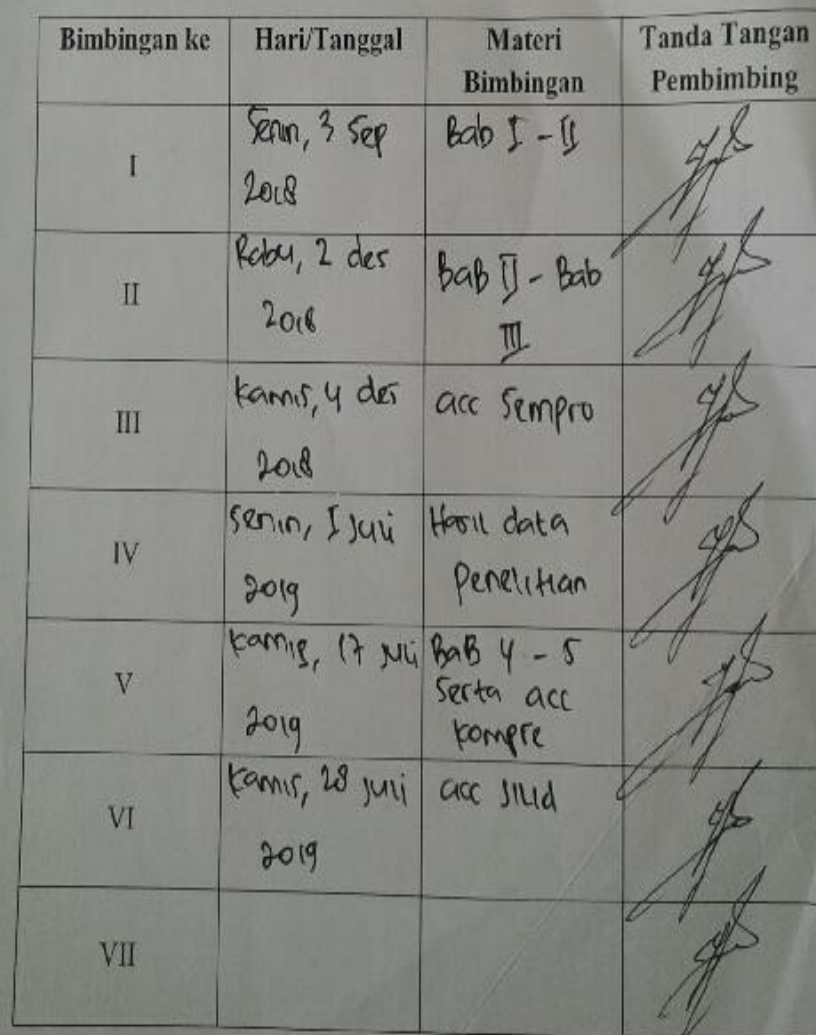 Bimbingan ke
Hari/Tanggal
Materi
Bimbingan
Tanda Tangan
Pembimbing
I
Senin, 3 Sep
2018
Bab I - II
II
Rabu, 2 des
2018
BaB II - Bab
III
III
Kamis, 4 des
2018
acc Sempro
IV
Senin, 1 Juli
2019
Hasil data
Penelitian
V
Kamis, 17 Juli
2019
BaB 4 - 5
Serta acc
Kompre
VI
Kamis, 28 Juli
2019
acc Jilid
VII